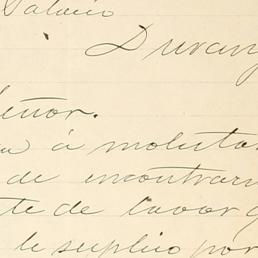 Palacio
Durang
eñor.
á molestar
de encontrarm
te de favor q
le suplico por